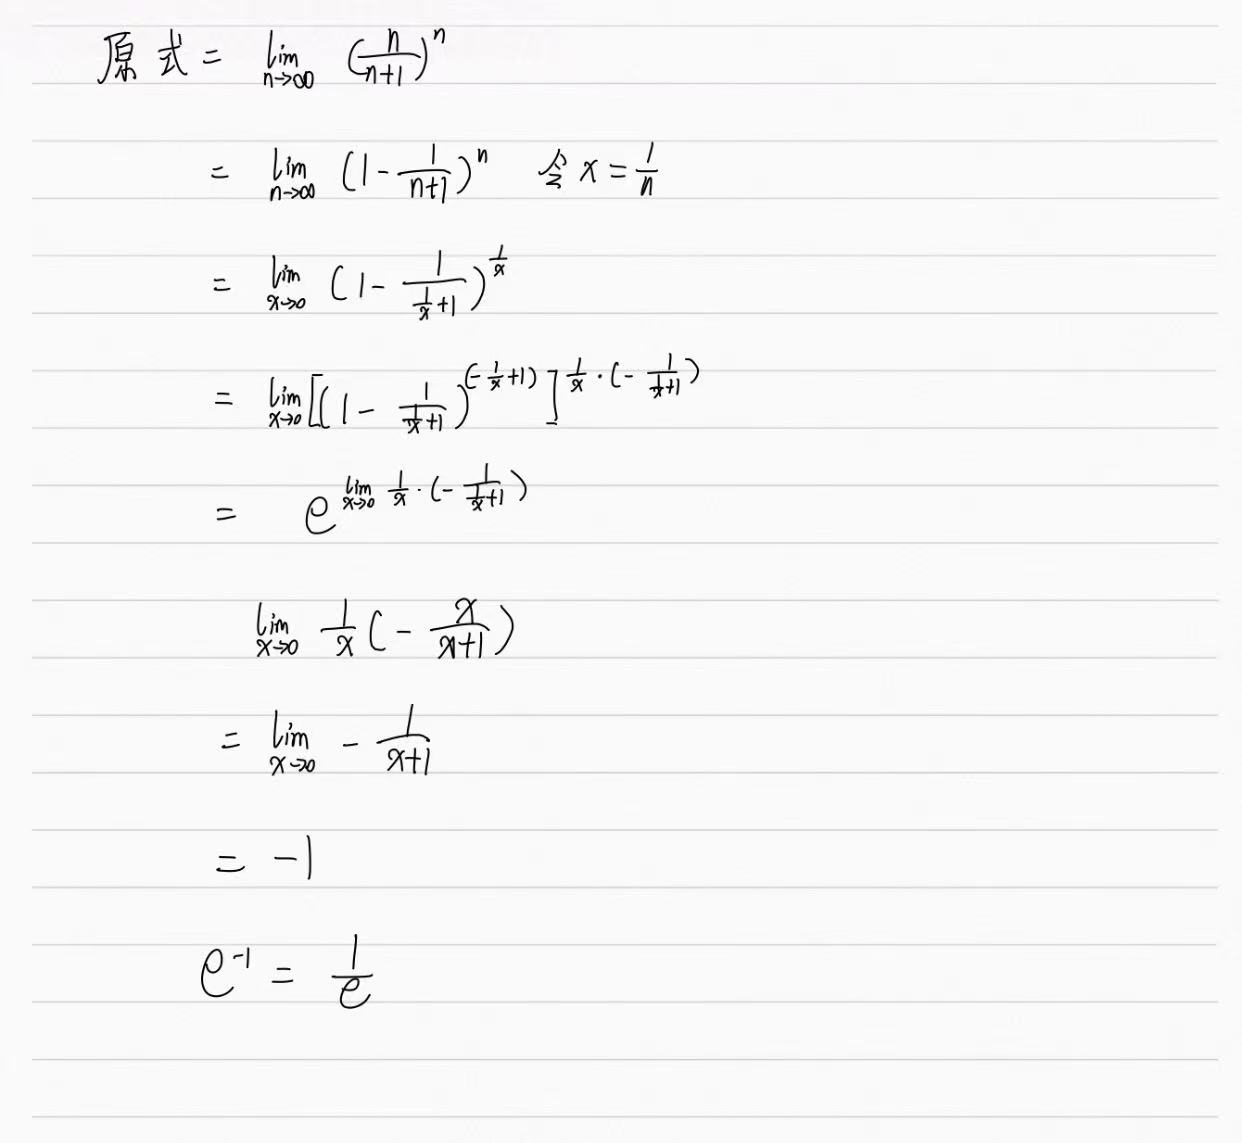 原式 = lim_{n→∞} (n/(n+1))^n
= lim_{n→∞} (1 - 1/(n+1))^n 令 x = 1/n
= lim_{x→0} (1 - 1/(1/x + 1))^{1/x}
= lim_{x→0} [(1 - 1/(1/x + 1))^{(-1/x + 1)}]^{1/x · (- 1/(1/x + 1))}
= e^{lim_{x→0} 1/x · (- 1/(1/x + 1))}
lim_{x→0} 1/x (- x/(x+1))
= lim_{x→0} - 1/(x+1)
= -1
e^{-1} = 1/e